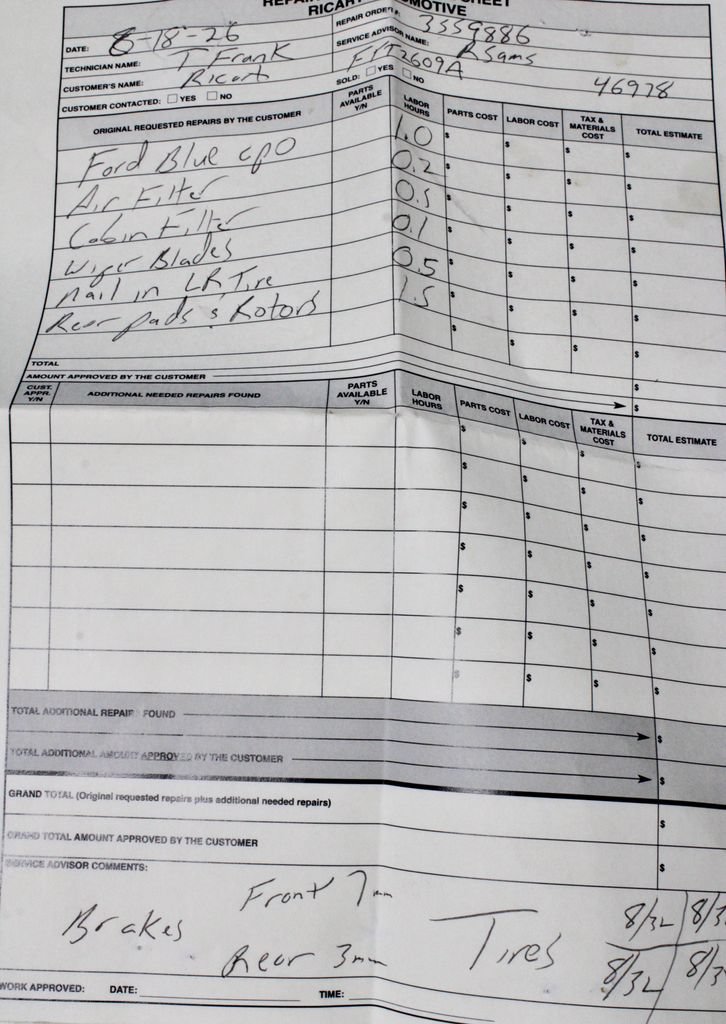 SHEET
RICART AUTOMOTIVE
DATE: 6-18-26
REPAIR ORDER #: 3559886
TECHNICIAN NAME: T Frank
SERVICE ADVISOR NAME: R Sams
CUSTOMER'S NAME: Ricart
FIT2609A
46978
CUSTOMER CONTACTED: YES NO
SOLD: YES NO
ORIGINAL REQUESTED REPAIRS BY THE CUSTOMER PARTS AVAILABLE Y/N LABOR HOURS PARTS COST LABOR COST TAX & MATERIALS COST TOTAL ESTIMATE
Ford Blue cpo 1.0 $ $ $ $
Air Filter 0.2 $ $ $ $
Cabin Filter 0.5 $ $ $ $
Wiper Blades 0.1 $ $ $ $
Nail in LR Tire 0.5 $ $ $ $
Rear pads & Rotors 1.5 $ $ $ $
$ $ $ $
TOTAL $
AMOUNT APPROVED BY THE CUSTOMER $
CUST. APPR. Y/N ADDITIONAL NEEDED REPAIRS FOUND PARTS AVAILABLE Y/N LABOR HOURS PARTS COST LABOR COST TAX & MATERIALS COST TOTAL ESTIMATE
$ $ $ $
$ $ $ $
$ $ $ $
$ $ $ $
$ $ $ $
$ $ $ $
$ $ $ $
TOTAL ADDITIONAL REPAIR FOUND $
TOTAL ADDITIONAL AMOUNT APPROVED BY THE CUSTOMER $
GRAND TOTAL (Original requested repairs plus additional needed repairs) $
GRAND TOTAL AMOUNT APPROVED BY THE CUSTOMER $
SERVICE ADVISOR COMMENTS:
Brakes Front 7mm
Rear 3mm
Tires 8/32 8/3
8/32 8/3
WORK APPROVED: DATE: TIME: